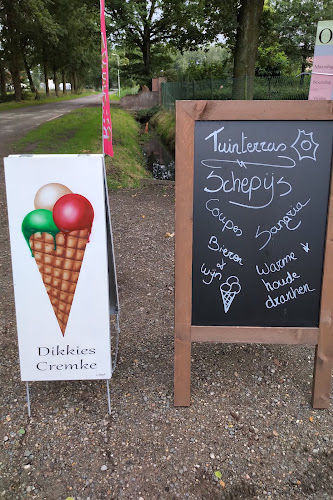 Dikkies
Cremke
Tuinterras
Schepijs
Coupes
Sangria
Bieren
wijn
Warme
koude
dranken